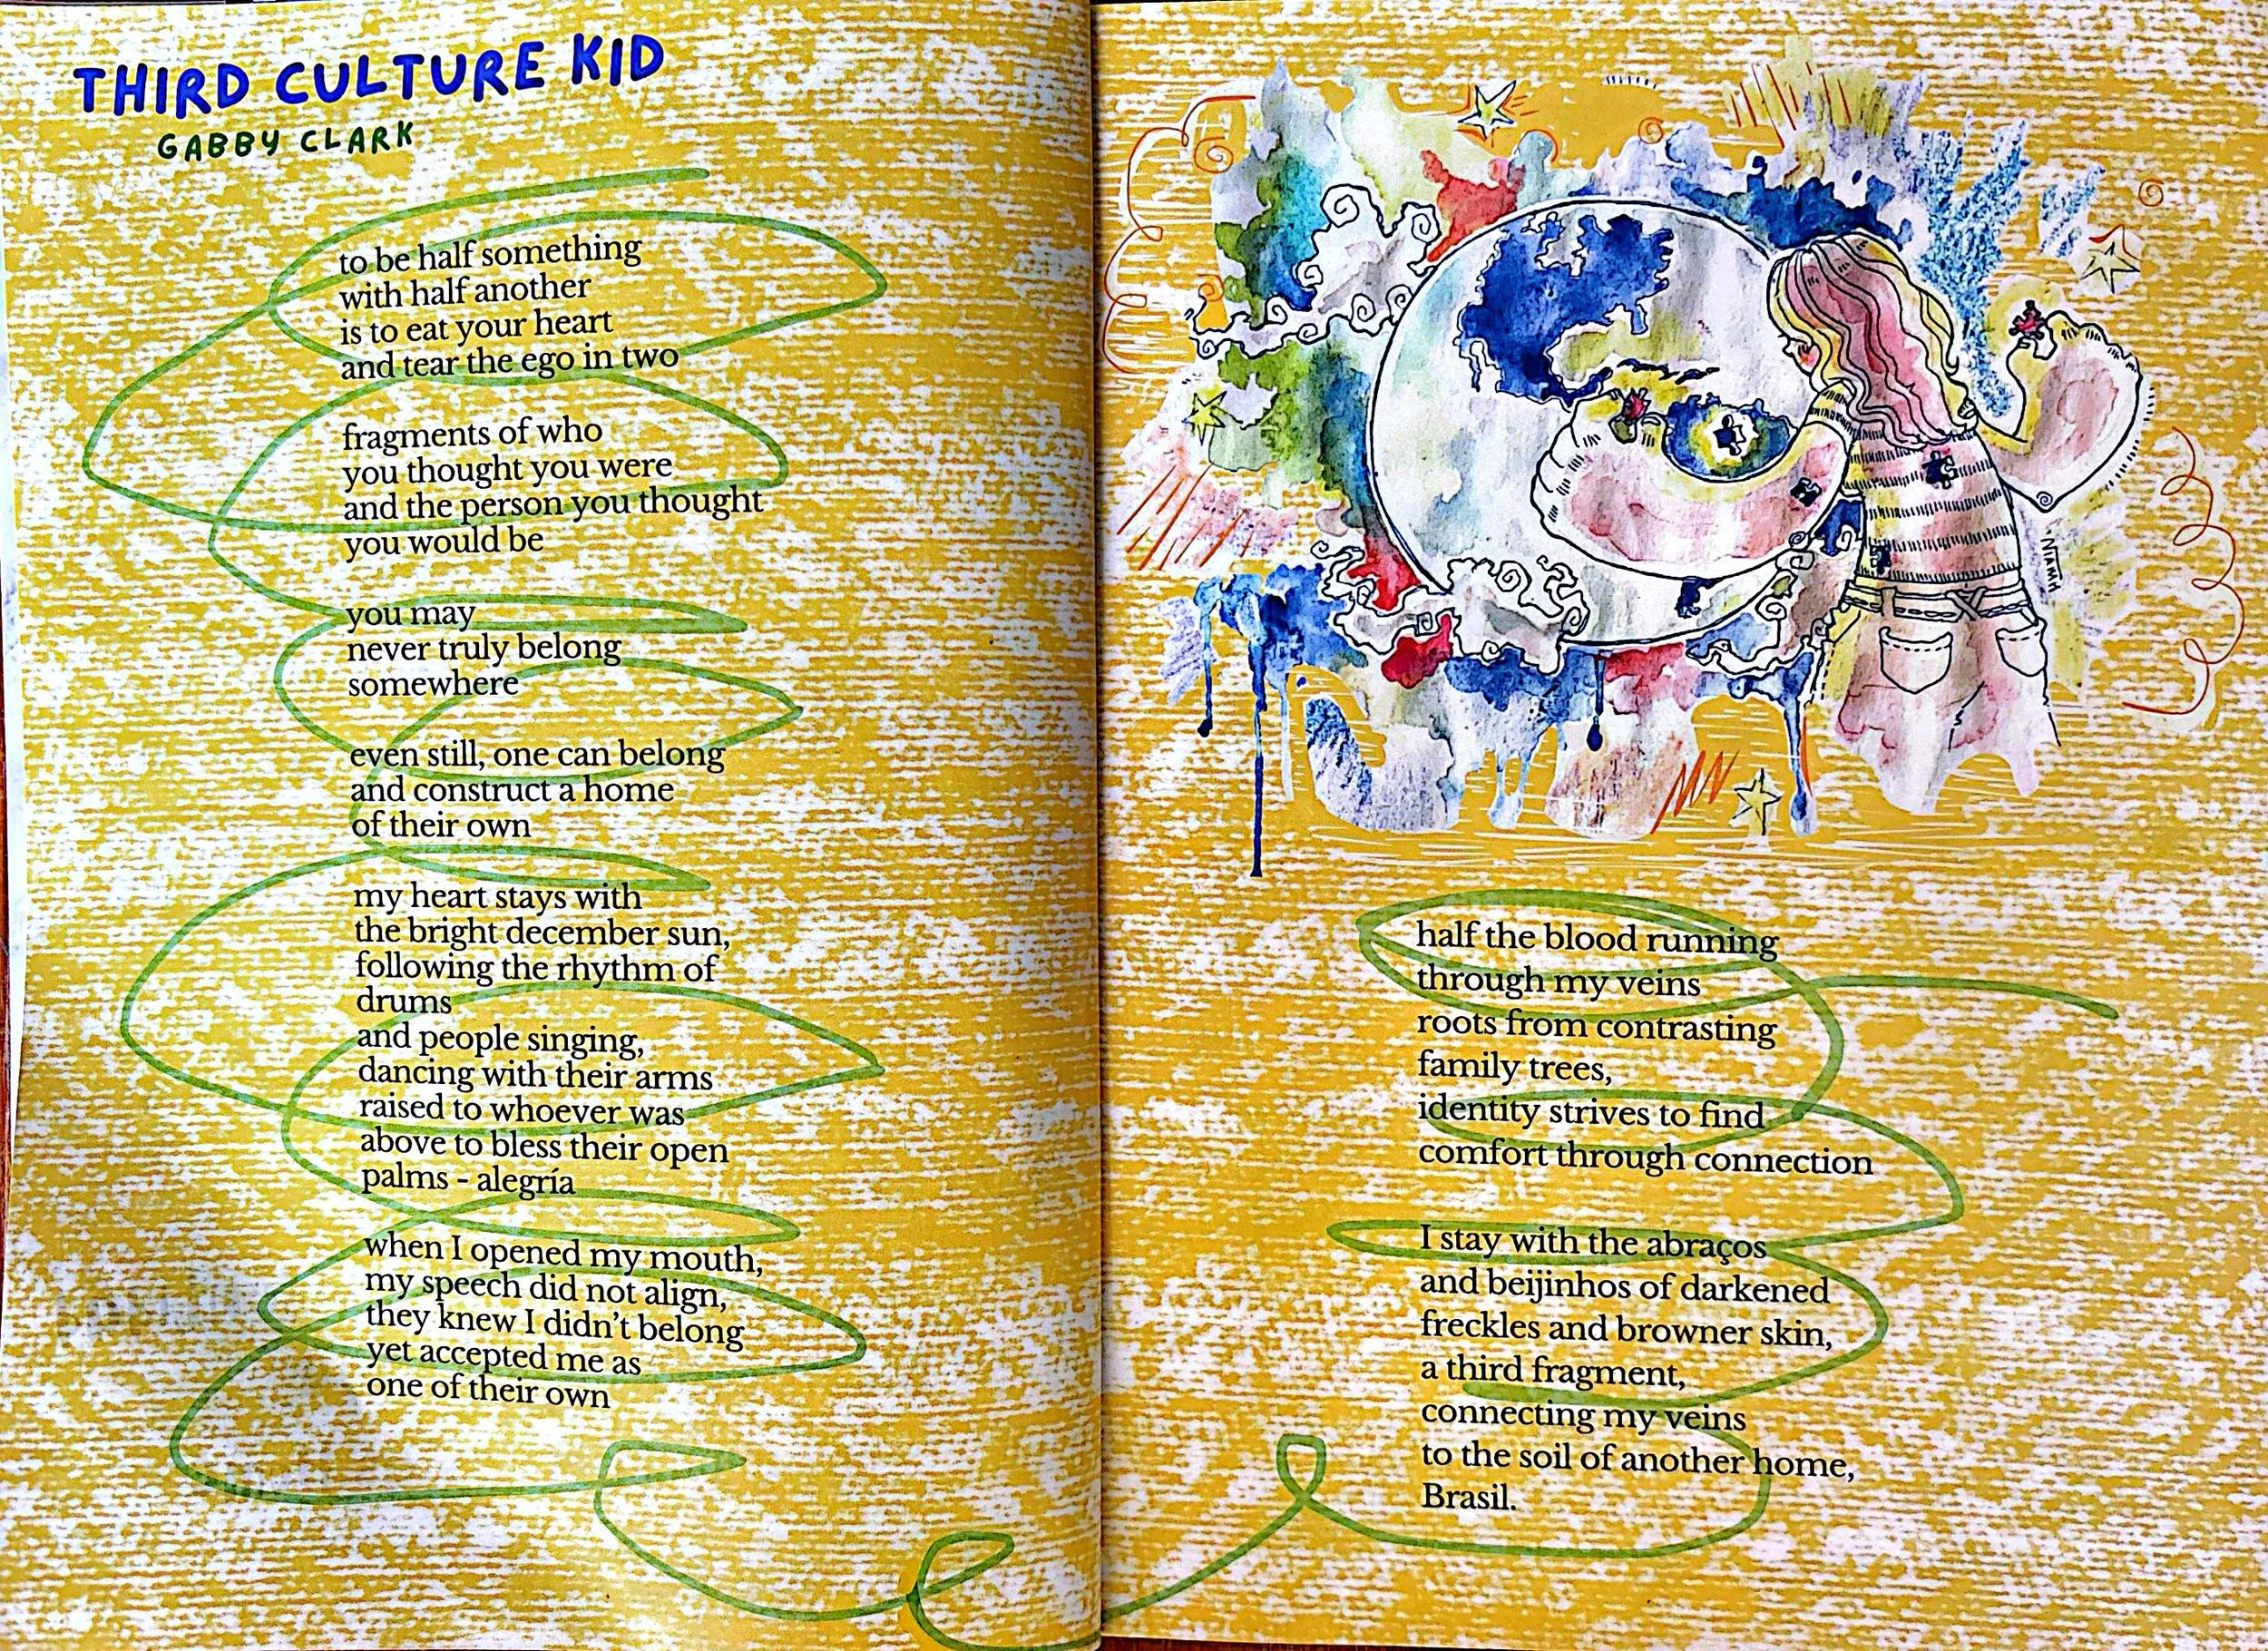 THIRD CULTURE KID
GABBY CLARK
to be half something
with half another
is to eat your heart
and tear the ego in two
fragments of who
you thought you were
and the person you thought
you would be
you may
never truly belong
somewhere
even still, one can belong
and construct a home
of their own
my heart stays with
the bright december sun,
following the rhythm of
drums
and people singing,
dancing with their arms
raised to whoever was
above to bless their open
palms - alegría
when I opened my mouth,
my speech did not align,
they knew I didn't belong
yet accepted me as
one of their own
NIAMH
half the blood running
through my veins
roots from contrasting
family trees,
identity strives to find
comfort through connection
I stay with the abraços
and beijinhos of darkened
freckles and browner skin,
a third fragment,
connecting my veins
to the soil of another home,
Brasil.